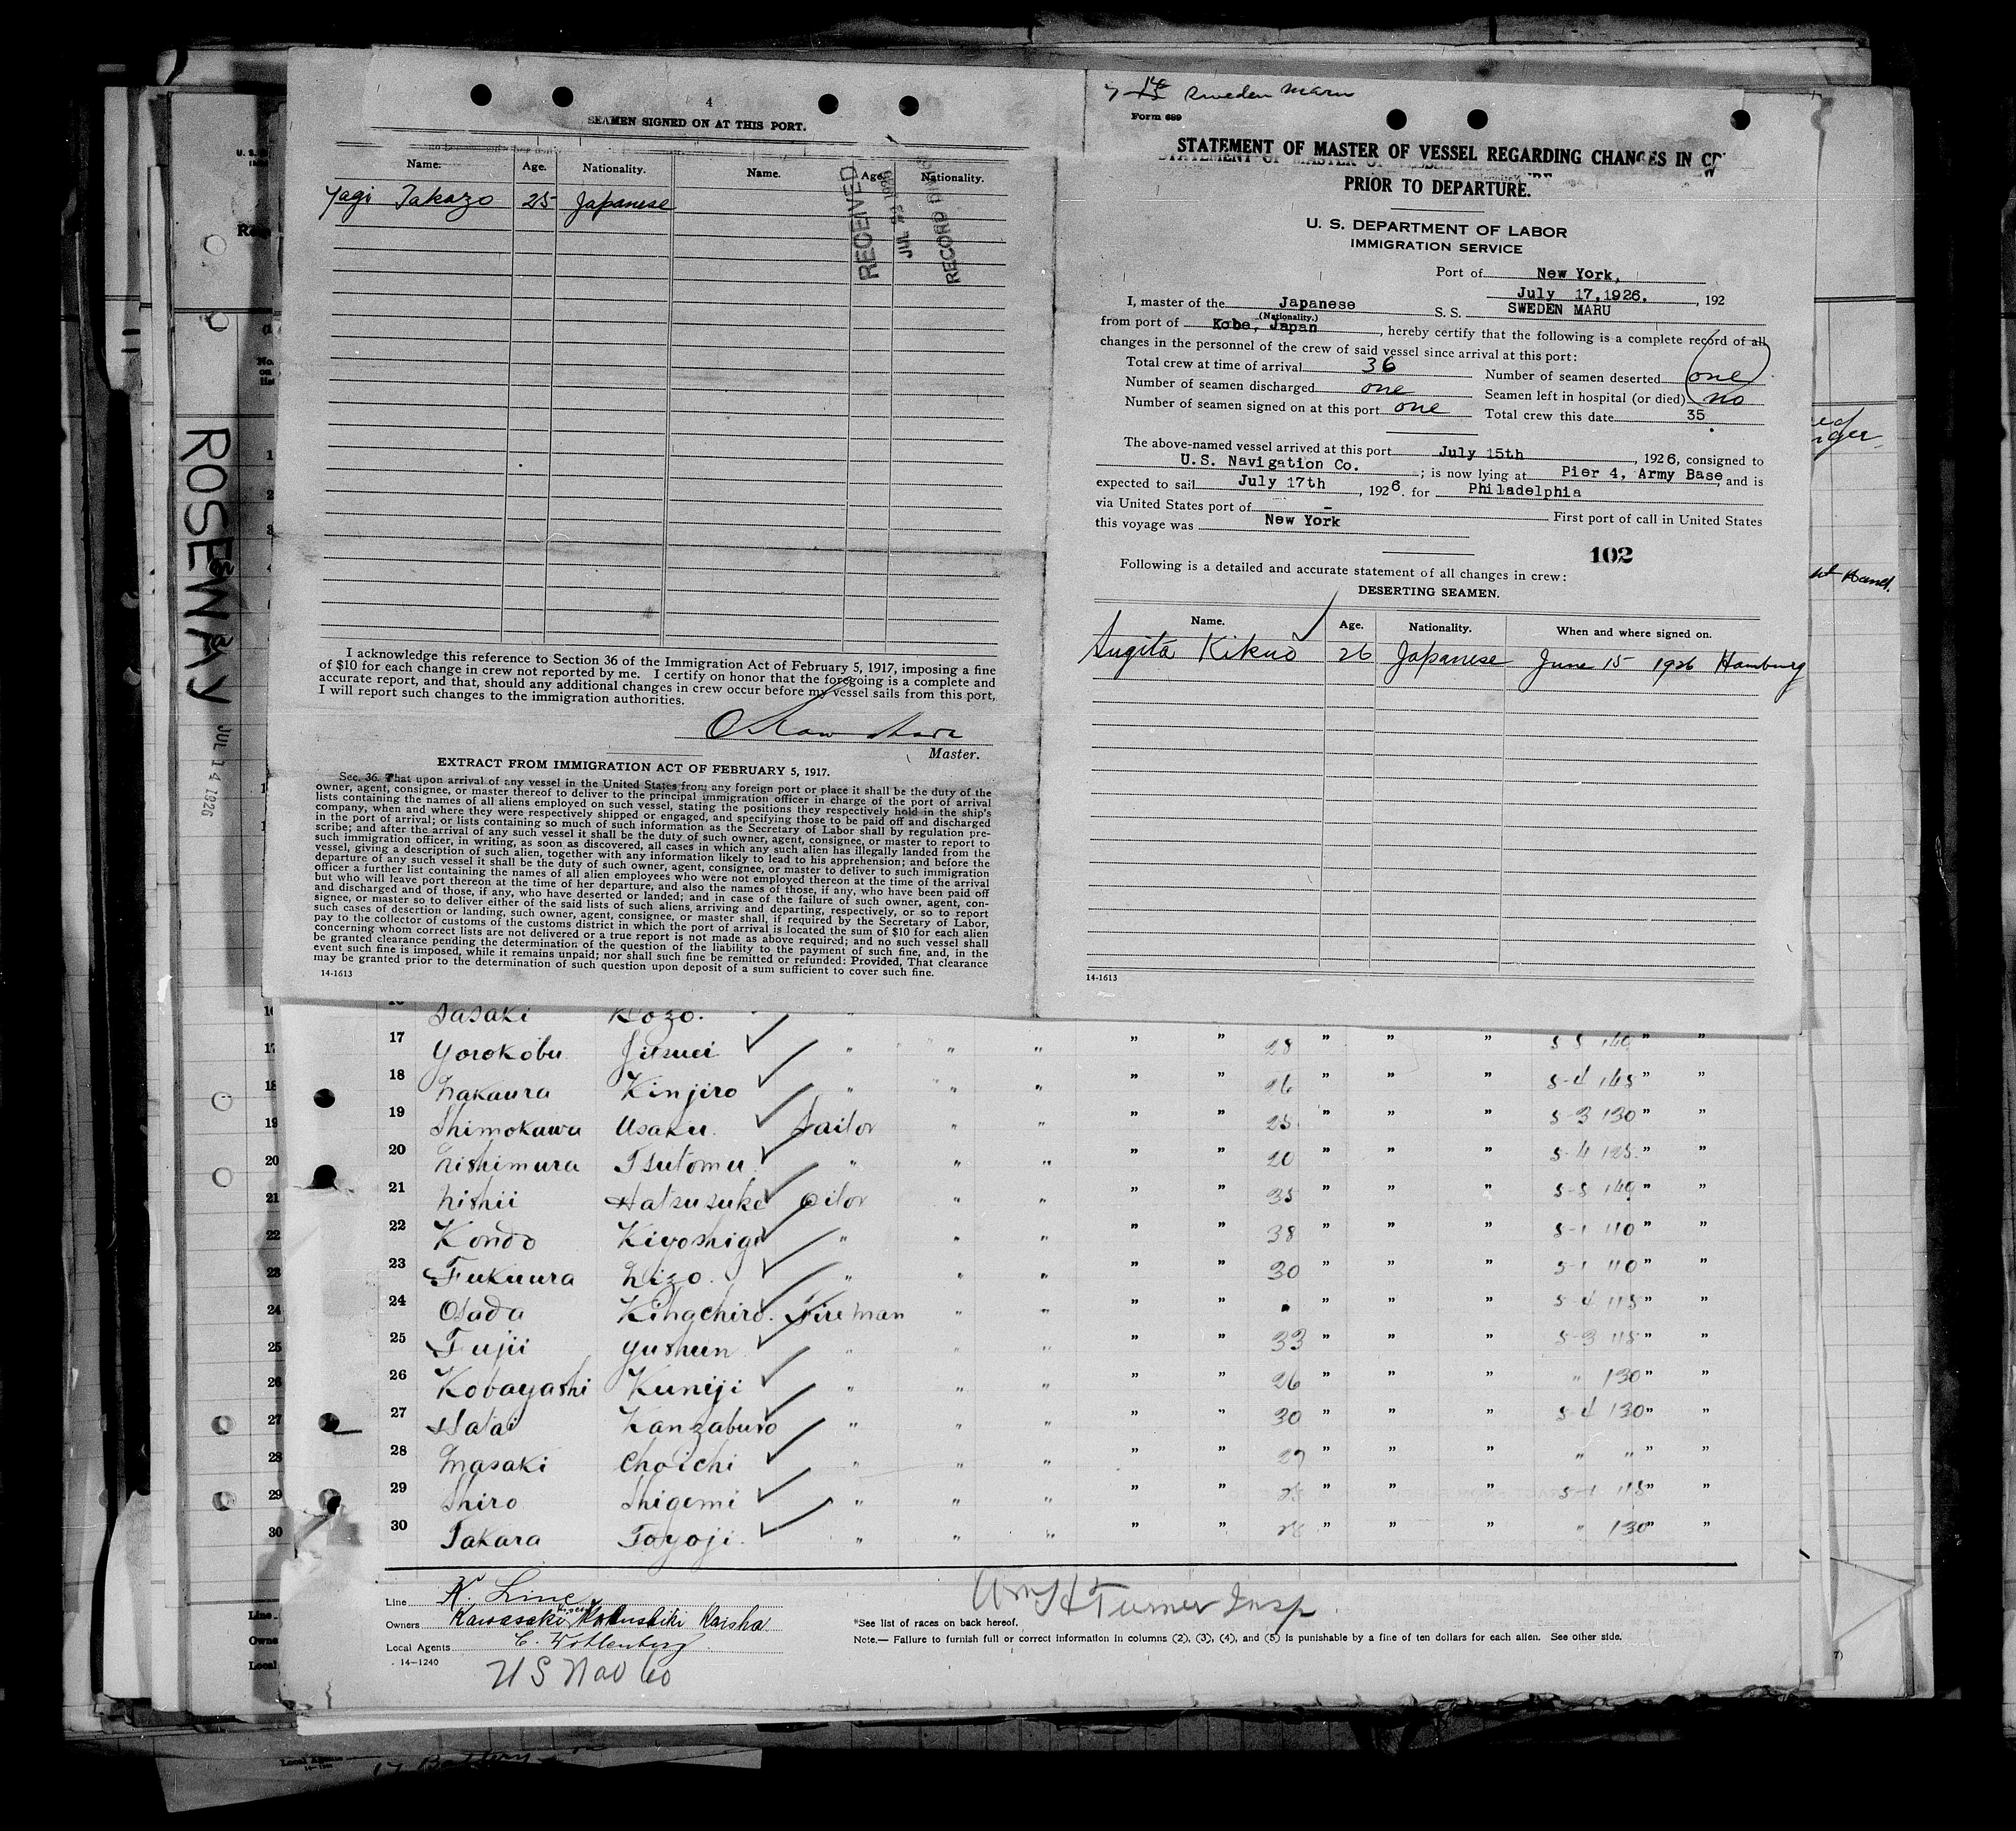 4
SEAMEN SIGNED ON AT THIS PORT.
Name. Age. Nationality. Name. Age. Nationality.
Yagi Takazo 25 Japanese
RECEIVED
JUL 23 1926
RECORD DIVIS
I acknowledge this reference to Section 36 of the Immigration Act of February 5, 1917, imposing a fine
of $10 for each change in crew not reported by me. I certify on honor that the foregoing is a complete and
accurate report, and that, should any additional changes in crew occur before my vessel sails from this port,
I will report such changes to the immigration authorities.
Master.
EXTRACT FROM IMMIGRATION ACT OF FEBRUARY 5, 1917.
Sec. 36. That upon arrival of any vessel in the United States from any foreign port or place it shall be the duty of the
owner, agent, consignee, or master thereof to deliver to the principal immigration officer in charge of the port of arrival
lists containing the names of all aliens employed on such vessel, stating the positions they respectively hold in the ship's
company, when and where they were respectively shipped or engaged, and specifying those to be paid off and discharged
in the port of arrival; or lists containing so much of such information as the Secretary of Labor shall by regulation pre-
scribe; and after the arrival of any such vessel it shall be the duty of such owner, agent, consignee, or master to report to
such immigration officer, in writing, as soon as discovered, all cases in which any such alien has illegally landed from the
vessel, giving a description of such alien, together with any information likely to lead to his apprehension; and before the
departure of any such vessel it shall be the duty of such owner, agent, consignee, or master to deliver to such immigration
officer a further list containing the names of all alien employees who were not employed thereon at the time of the arrival
but who will leave port thereon at the time of her departure, and also the names of those, if any, who have been paid off
and discharged and of those, if any, who have deserted or landed; and in case of the failure of such owner, agent, con-
signee, or master so to deliver either of the said lists of such aliens arriving and departing, respectively, or so to report
such cases of desertion or landing, such owner, agent, consignee, or master shall, if required by the Secretary of Labor,
pay to the collector of customs of the customs district in which the port of arrival is located the sum of $10 for each alien
concerning whom correct lists are not delivered or a true report is not made as above required; and no such vessel shall
be granted clearance pending the determination of the question of the liability to the payment of such fine, and, in the
event such fine is imposed, while it remains unpaid; nor shall such fine be remitted or refunded: Provided, That clearance
may be granted prior to the determination of such question upon deposit of a sum sufficient to cover such fine.
14-1613
Sweden Maru
Form 689
STATEMENT OF MASTER OF VESSEL REGARDING CHANGES IN CREW
PRIOR TO DEPARTURE.
U. S. DEPARTMENT OF LABOR
IMMIGRATION SERVICE
Port of New York,
July 17,1926. , 192
I, master of the Japanese S. S. SWEDEN MARU
(Nationality.)
from port of Kobe, Japan , hereby certify that the following is a complete record of all
changes in the personnel of the crew of said vessel since arrival at this port:
Total crew at time of arrival 36 Number of seamen deserted one
Number of seamen discharged one Seamen left in hospital (or died) no
Number of seamen signed on at this port one Total crew this date 35
The above-named vessel arrived at this port July 15th , 1926, consigned to
U.S. Navigation Co. ; is now lying at Pier 4, Army Base, and is
expected to sail July 17th , 1926. for Philadelphia
via United States port of - First port of call in United States
this voyage was New York
102
Following is a detailed and accurate statement of all changes in crew:
DESERTING SEAMEN.
Name. Age. Nationality. When and where signed on.
Sugita Kikuo 26 Japanese June 15 1926 Hamburg
14-1613
ROSEWAY
JUL 14 1926
Sasaki Kozo.
17 Yorokobu Jitsuei " " " " " 28 " " " 5 5 140 " "
18 Nakaura Kinjiro " " " " " 26 " " " 5-4 145 " "
19 Shimokawa Usaku. Sailor " " " " 25 " " " 5-3 130 " "
20 Nishimura Tsutomu " " " " " 20 " " " 5-4 125 " "
21 Nishii Hatsusuke Oilor " " " " 35 " " " 5-5 140 " "
22 Kondo Kiyoshige " " " " " 38 " " " 5-1 110 " "
23 Fukuura Nizo. " " " " " 30 " " " 5-1 110 " "
24 Osada Kihachiro. Fireman " " " " " " " 5-4 115 " "
25 Fujii Yushun " " " " " 33 " " " 5-3 115 " "
26 Kobayashi Kuniji " " " " " 26 " " " " 130 " "
27 Hatai Kanzaburo " " " " " 30 " " " 5-4 130 " "
28 Masaki Choichi " " " " " 27 " " " " " " "
29 Shiro Shigemi " " " " " " " " 5-1 115 " "
30 Takara Toyoji. " " " " " 28 " " " " 130 " "
Line K. Line
Owners Kawasaki Kisen Kabushiki Kaisha
Local Agents
14-1240
U S Nav Co
Wm H Turner Insp.
*See list of races on back hereof.
Note.— Failure to furnish full or correct information in columns (2), (3), (4), and (5) is punishable by a fine of ten dollars for each alien. See other side.
17 Battery